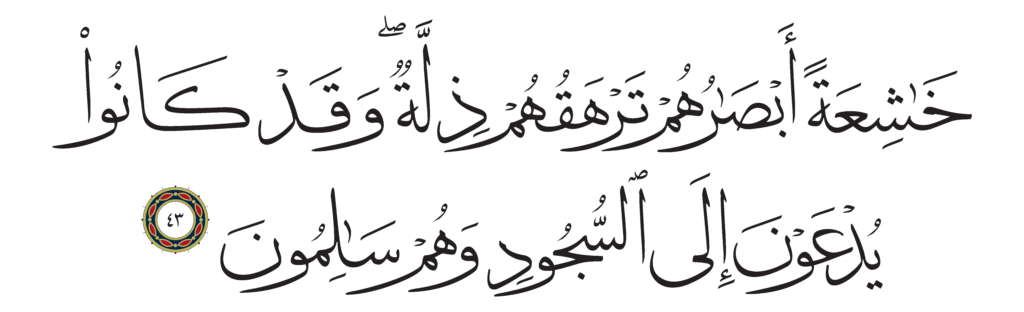 خَٰشِعَةً أَبۡصَٰرُهُمۡ تَرۡهَقُهُمۡ ذِلَّةٞۖ وَقَدۡ كَانُواْ
يُدۡعَوۡنَ إِلَى ٱلسُّجُودِ وَهُمۡ سَٰلِمُونَ ٤٣